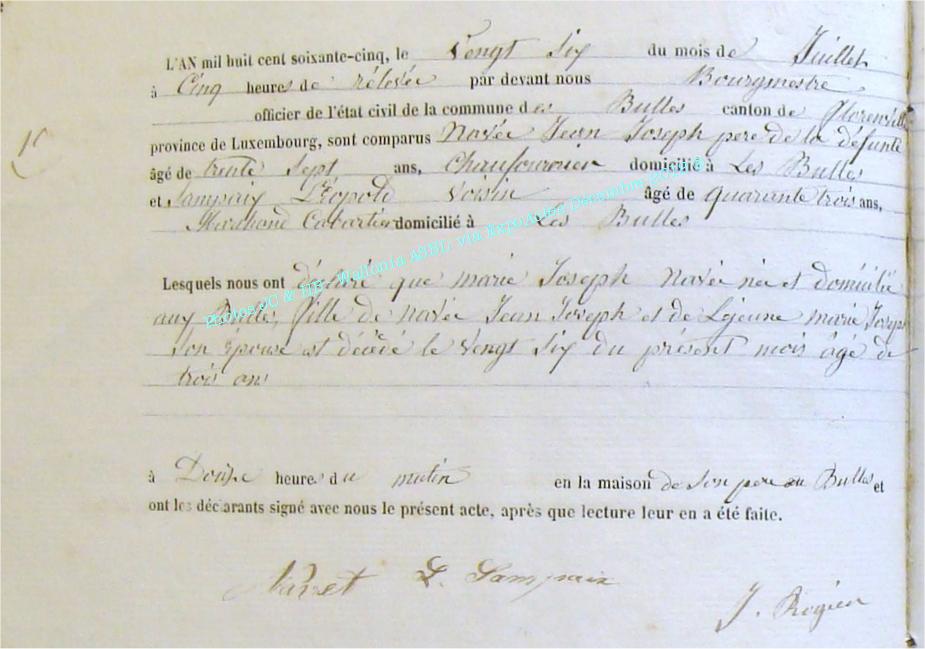 L'AN mil huit cent soixante-cinq, le Vengt Six du mois de Juillet
à Cinq heures de rélévée par devant nous Bourgmestre
officier de l'état civil de la commune des Bulles canton de Florenville
province de Luxembourg, sont comparus Navée Jean Joseph pere de la défunte
âgé de trente Sept ans, Chaufournier domicilié à Les Bulles
et Sampaix Léopold Voisin âgé de quarante trois ans,
Marchand Cabartier domicilié à Les Bulles
Lesquels nous ont déclaré que marie Joseph Navée née et domicilié
aux Bulles, fille de Navée Jean Joseph et de Lejeune marie Joseph
Son épouse est décédé le Vengt Six du présent mois âgé de
trois ans
à Douze heures du matin en la maison de son pere au Bulles et
ont les déclarants signé avec nous le présent acte, après que lecture leur en a été faite.
L. Sampaix
J. Rogier
Photos PC & HB - Wallonia ASBL via ExpoActes Décembre